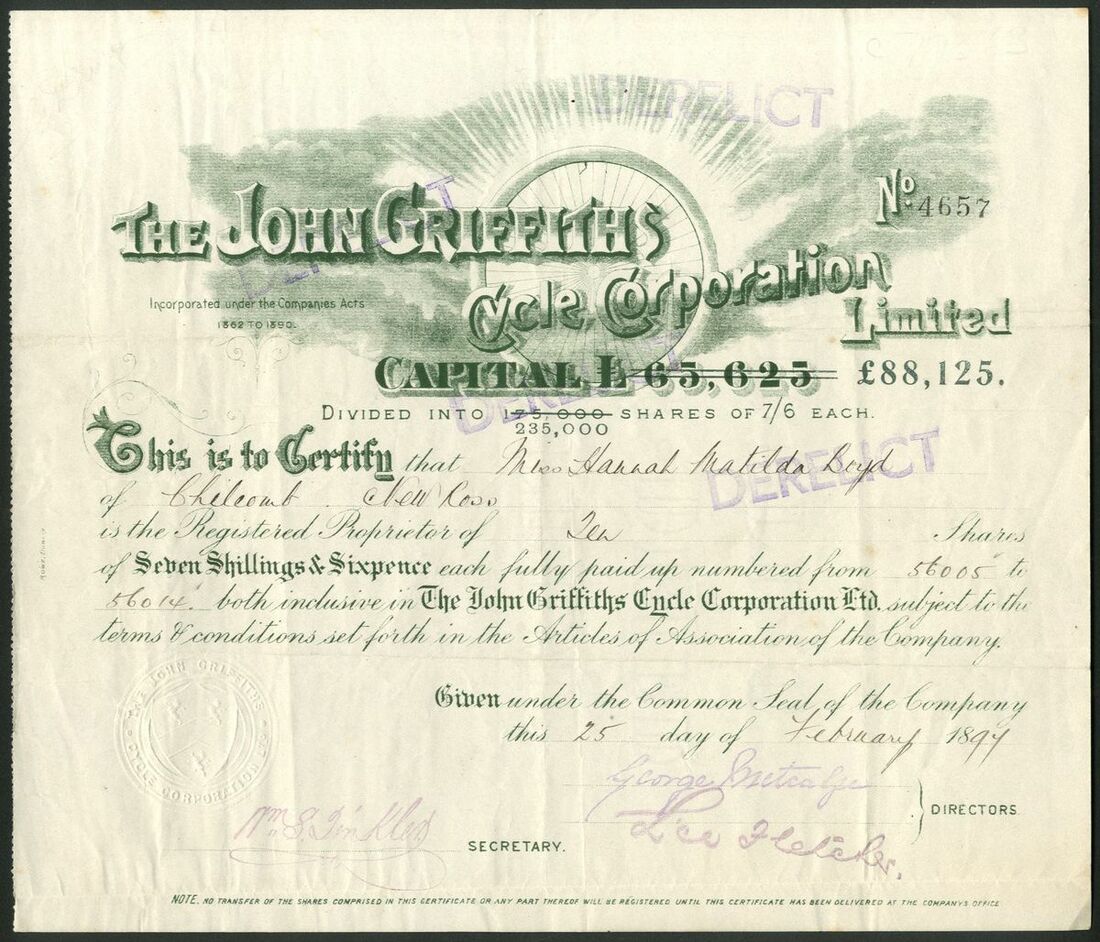 DERELICT
No. 4657
THE JOHN GRIFFITHS
DERELICT
Cycle Corporation
Limited
Incorporated under the Companies Acts
1862 TO 1890.
CAPITAL £65,625 £88,125.
DERELICT
DIVIDED INTO 175,000 SHARES OF 7/6 EACH.
235,000
This is to Certify that Miss Hannah Matilda Boyd
DERELICT
of Chilcomb. New Ross
is the Registered Proprietor of Ten Shares
of Seven Shillings & Sixpence each fully paid up numbered from 56005 to
56014. both inclusive in The John Griffiths Cycle Corporation Ltd. subject to the
terms & conditions set forth in the Articles of Association of the Company.
THE JOHN GRIFFITHS CYCLE CORPORATION
Given under the Common Seal of the Company
this 25 day of February 1897
George Metcalfe
DIRECTORS.
Fletcher.
SECRETARY.
NOTE. NO TRANSFER OF THE SHARES COMPRISED IN THIS CERTIFICATE OR ANY PART THEREOF WILL BE REGISTERED UNTIL THIS CERTIFICATE HAS BEEN DELIVERED AT THE COMPANYS OFFICE